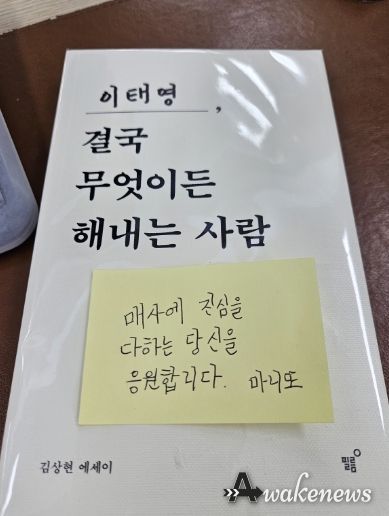 이태영,
결국
무엇이든
해내는 사람
매사에 진심을
다하는 당신을
응원합니다. 마니또
김상현 에세이
필름
Awakenews